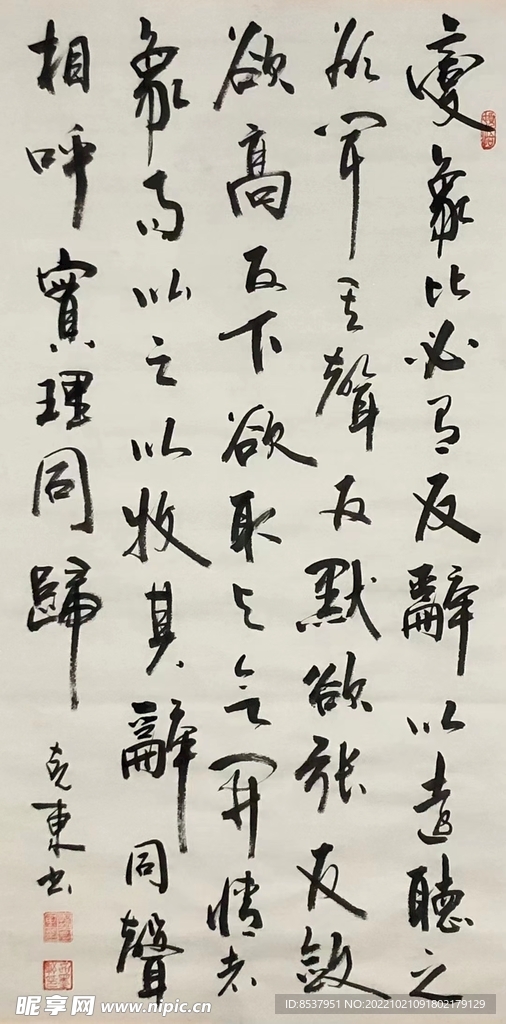 變象比必有反辭以聽之
欲聞其聲反默欲張反斂
欲高反下欲取開情者
象而比之以牧其辭同聲
相呼實理同歸
克東書
昵享网 www.nipic.cn
ID:8537951 NO:20221021091802179129